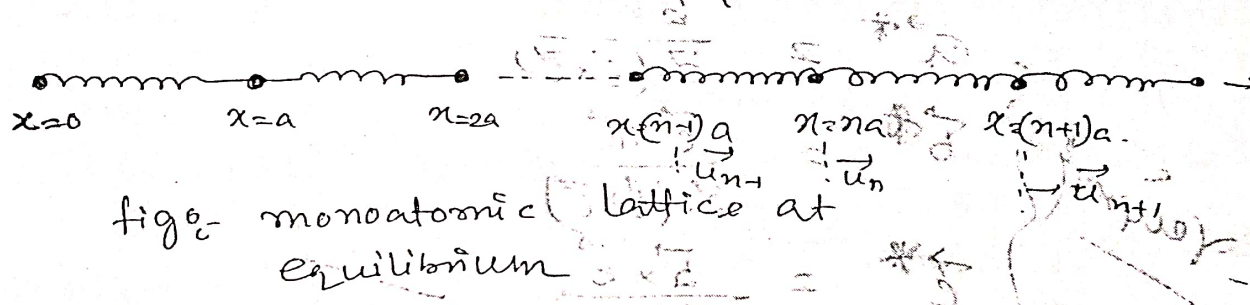 x=0 x=a x=2a x=(n-1)a x=na x=(n+1)a.
u n-1 u n u n+1
fig:- monoatomic lattice at
equilibrium